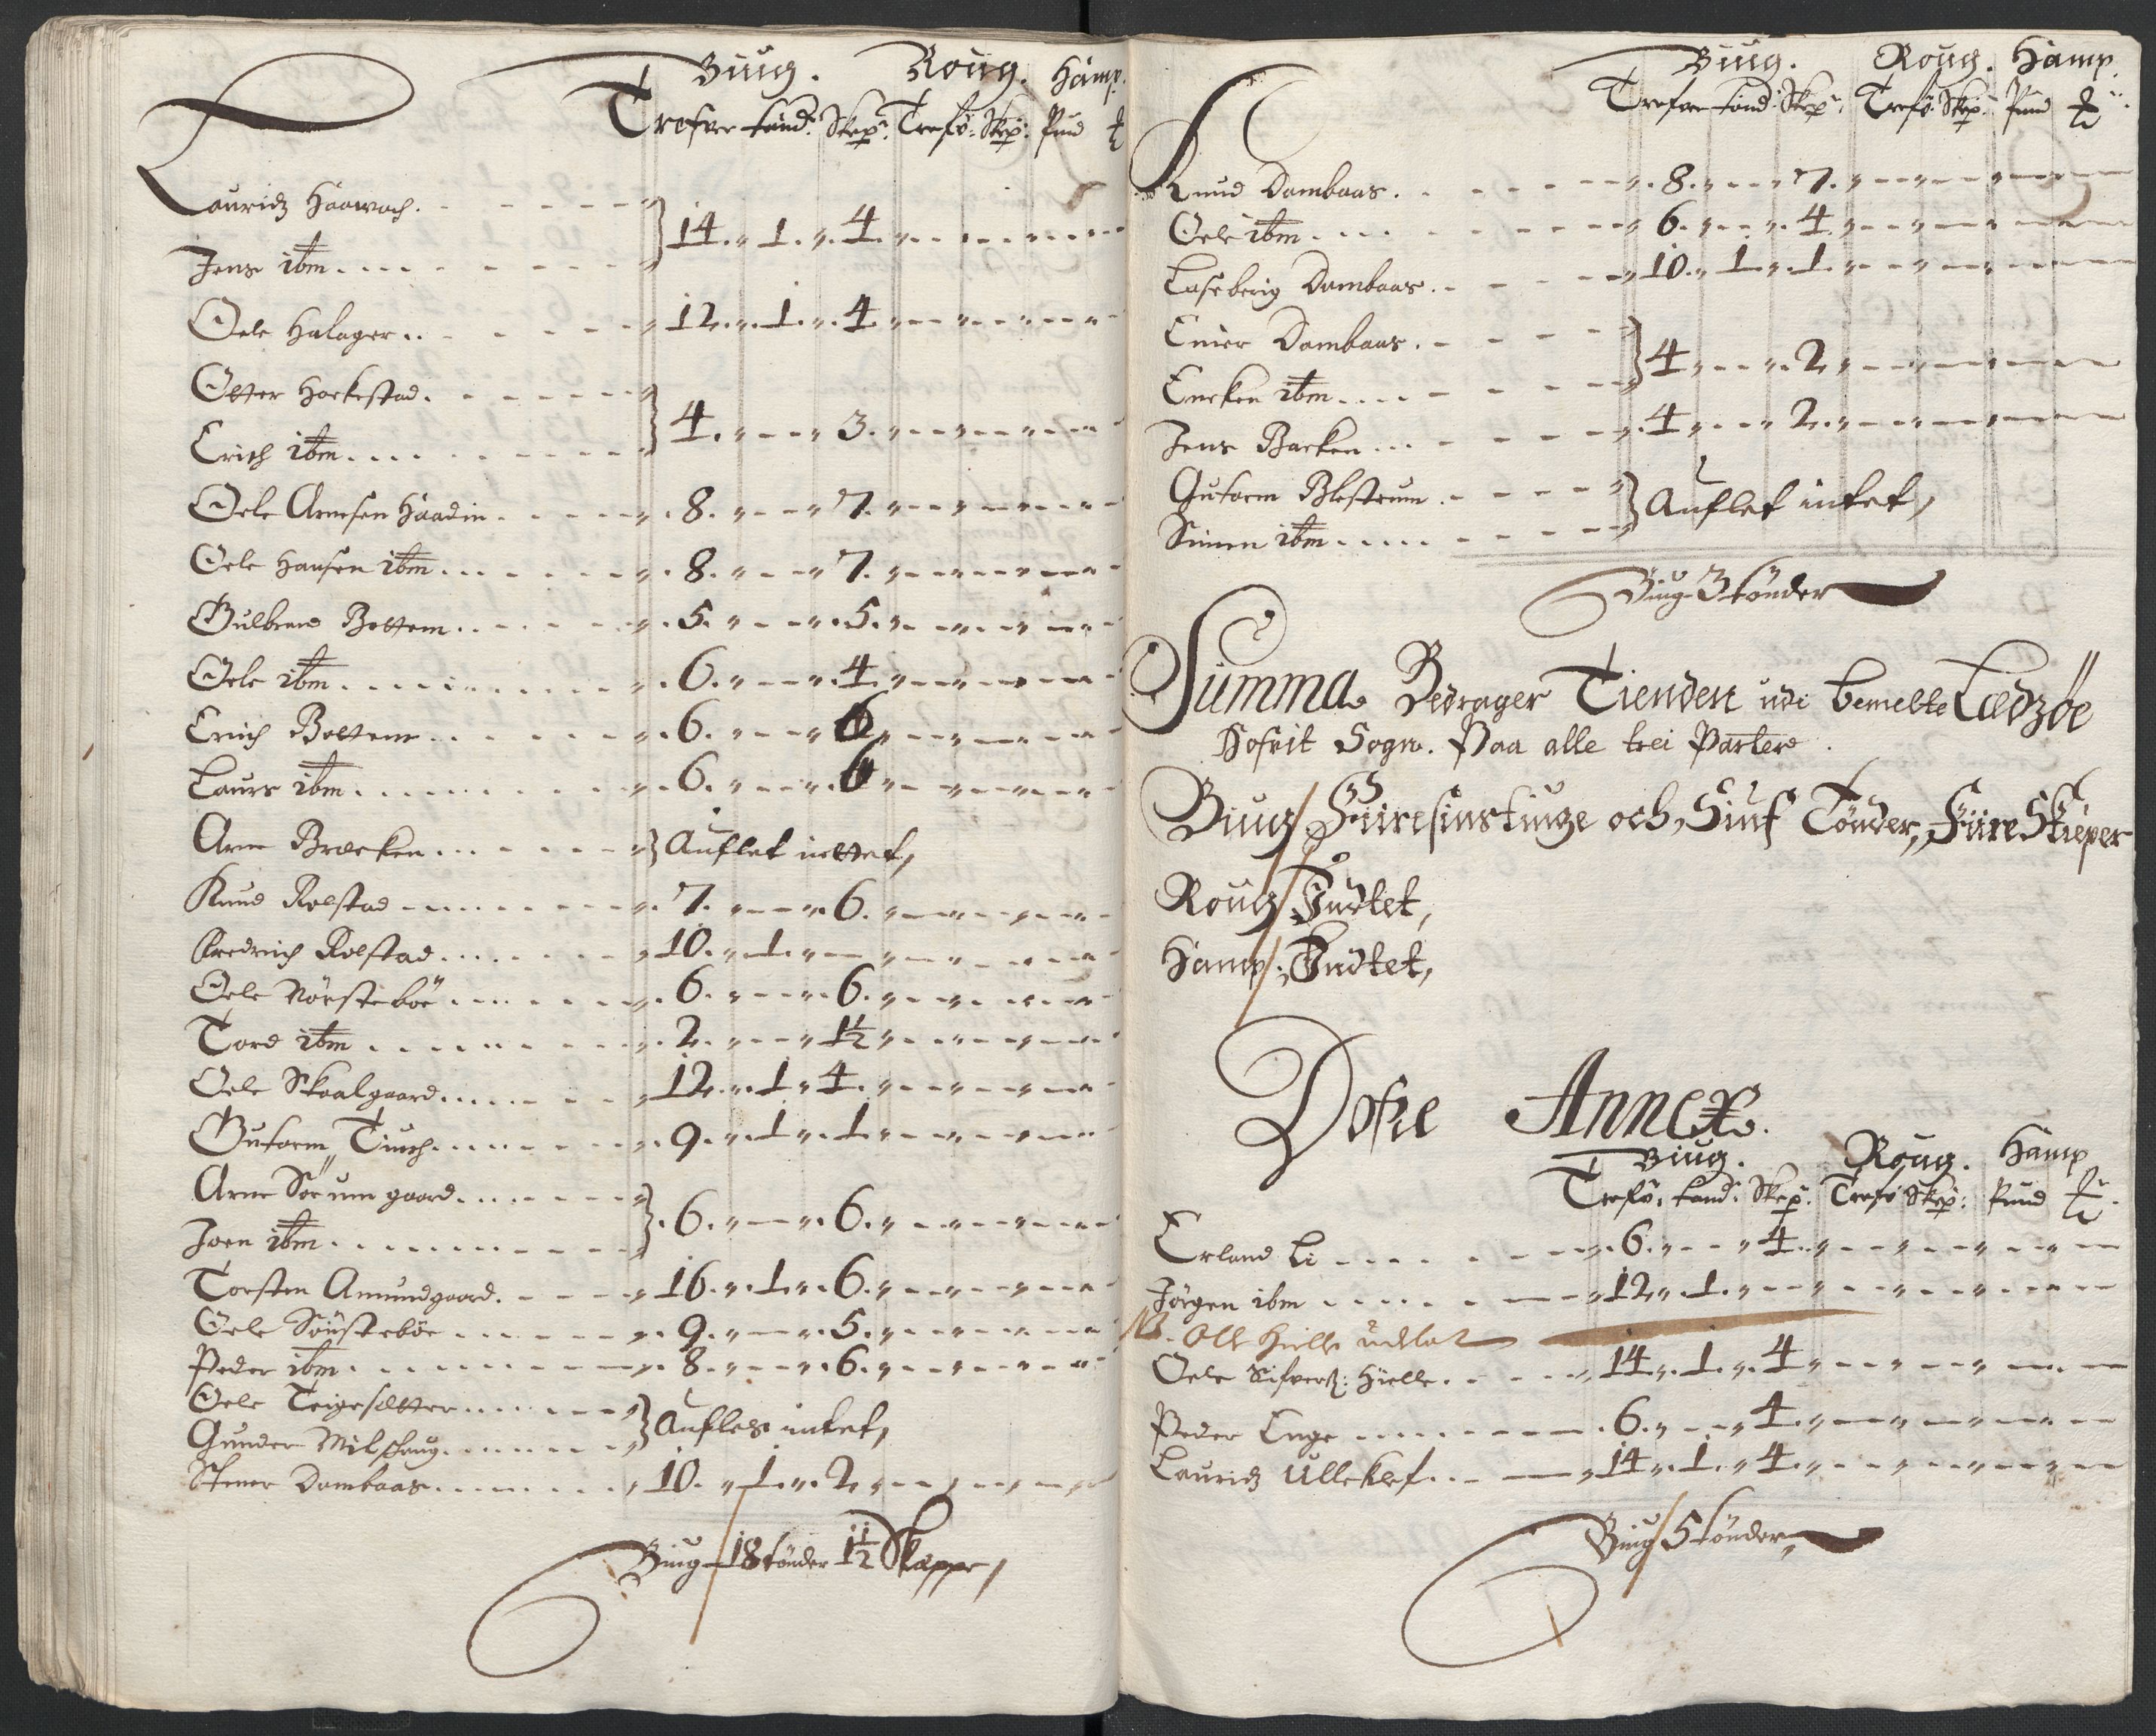 Biug. Roug. Hamp.
Trefver tønd: Skep: Trefv: Skep: Pund ℔
Lauridz Haawach.
Jens ibm. 14. 1. 4.
Oele Halager. 12. 1. 4.
Otter Horkestad.
Erich ibm. 4. 3.
Oele Arnesen Haadin 8. 7.
Oele Hansen ibm. 8. 7.
Gulbran Bottem. 5. 5.
Oele ibm. 6. 4.
Erich Bottem 6. 6.
Laurs ibm. 6. 6
Arne Bræcken. Aufled inttet,
Knud Rolstad 7. 6.
Fredrich Rolstad. 10. 1.
Oele Nørstebøe 6. 6.
Tord ibm 2. 1½
Oele Skaalgaard. 12. 1. 4.
Guttorm Tiuch. 9. 1. 1.
Arne Sørumgaard.
Joen ibm. 6. 6.
Torsten Amundgaard. 16. 1. 6.
Oele Søystebøe 9. 5.
Peder ibm. 8. 6.
Oele Teigesetter.
Gunder Milschoug. Aufled intet,
Stener Dombaas. 10. 1. 2.
Biug 18 tønder 1½ Skeppe,
Biug. Roug. Hamp.
Trefver tønd: Skep: Trefv: Skep: Pund ℔
Knud Dombaas. 8. 7.
Oele ibm. 6. 4.
Laseberig Dombaas. 10. 1. 1.
Einer Dombaas.
Encken ibm. 4. 2.
Jens Backen. 4. 2.
Guttorm Blestrum
Simen ibm. Aufled intet,
Biug 3 tønder
Summa Bedrager Tienden udi bemelte Ledzøe
Hofvit Sogn. Paa alle trei Parter.
Biug Fiiresinstiuge och Siuf Tønder, Fiire Skieper
Roug Indtet,
Hamp: Indtet,
Dofre Annex.
Biug. Roug. Hamp
Trefv: tønd: Skep: Trefv Skep: Pund ℔
Erland Li 6. 4.
Jørgen ibm 12. 1.
NB. Olle Hielle udlat
Oele Sifvers: Hielle. 14. 1. 4.
Peder Enge 6. 4.
Lauridz Ulleklef. 14. 1. 4.
Biug 5 tønder,